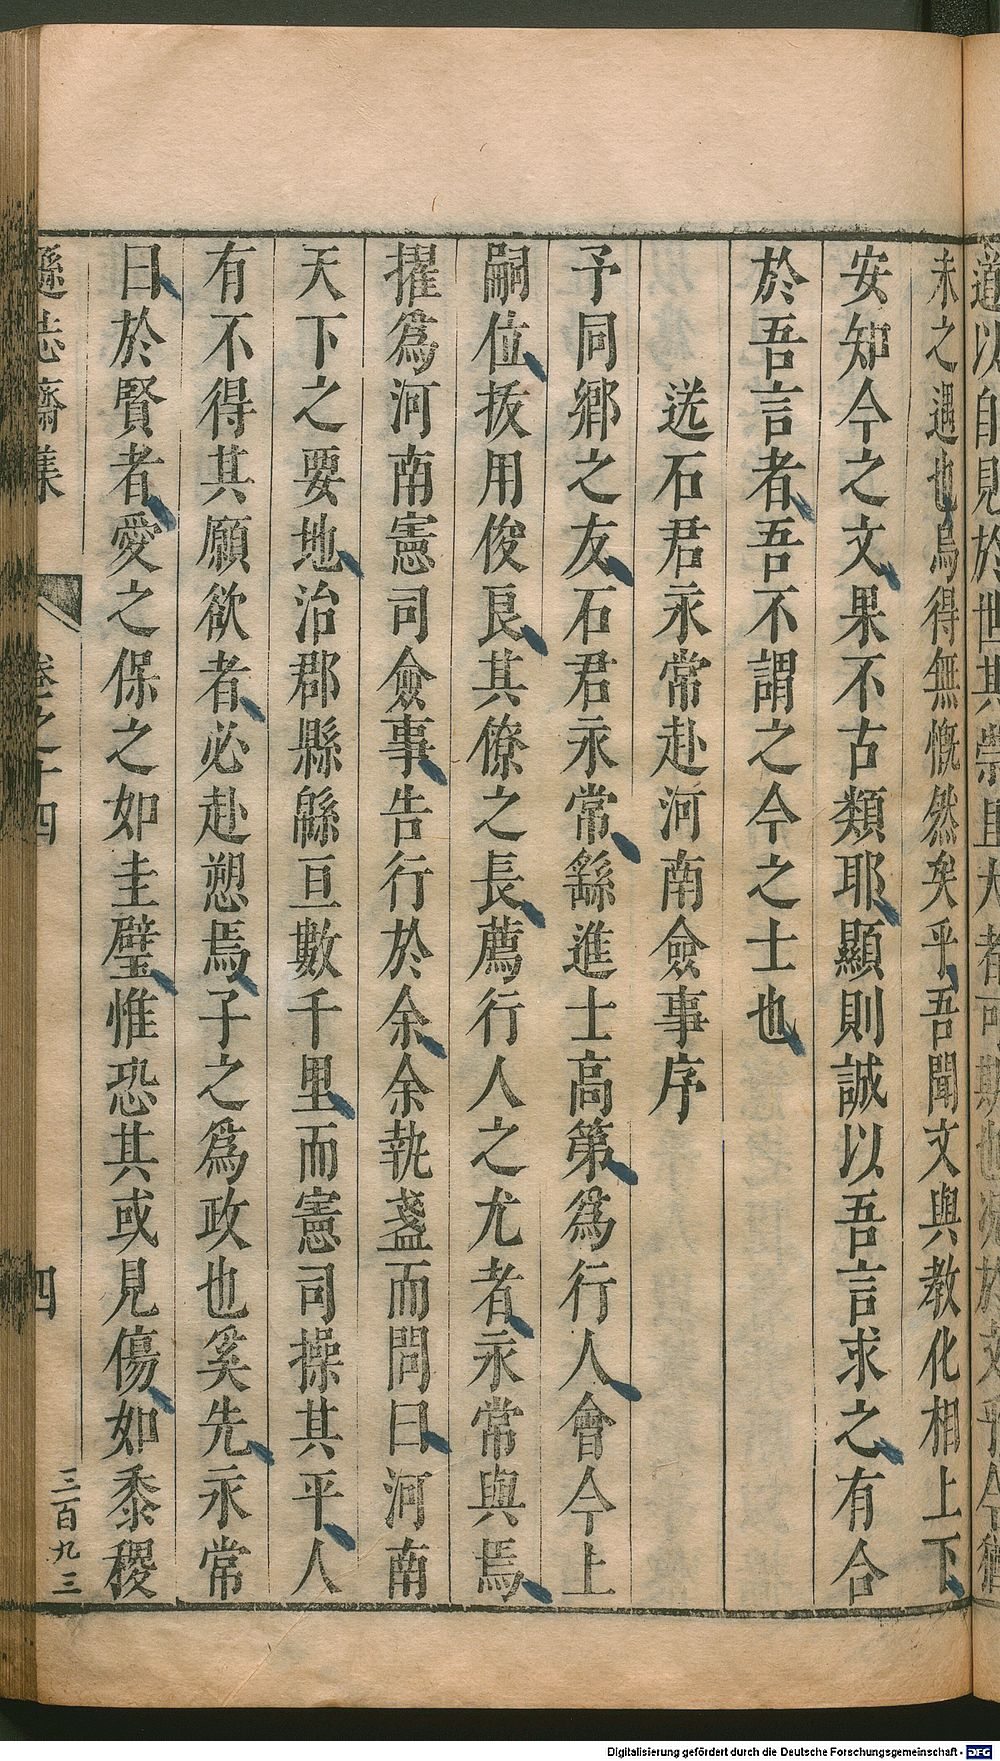 道以自見於世其崇且大者可期也況於文乎今猶
未之遇也烏得無慨然矣乎吾聞文與教化相上下
安知今之文果不古類耶顯則誠以吾言求之有合
於吾言者吾不謂之今之士也
送石君永常赴河南僉事序
予同鄉之友石君永常繇進士高第為行人會今上
嗣位拔用俊良其僚之長薦行人之尤者永常與焉
擢為河南憲司僉事告行於余余執盞而問曰河南
天下之要地治郡縣緜亘數千里而憲司操其平人
有不得其願欲者必赴愬焉子之為政也奚先永常
曰於賢者愛之保之如圭璧惟恐其或見傷如黍稷
遜志齋集 卷之十四 四
三百九三
Digitalisierung gefördert durch die Deutsche Forschungsgemeinschaft - DFG